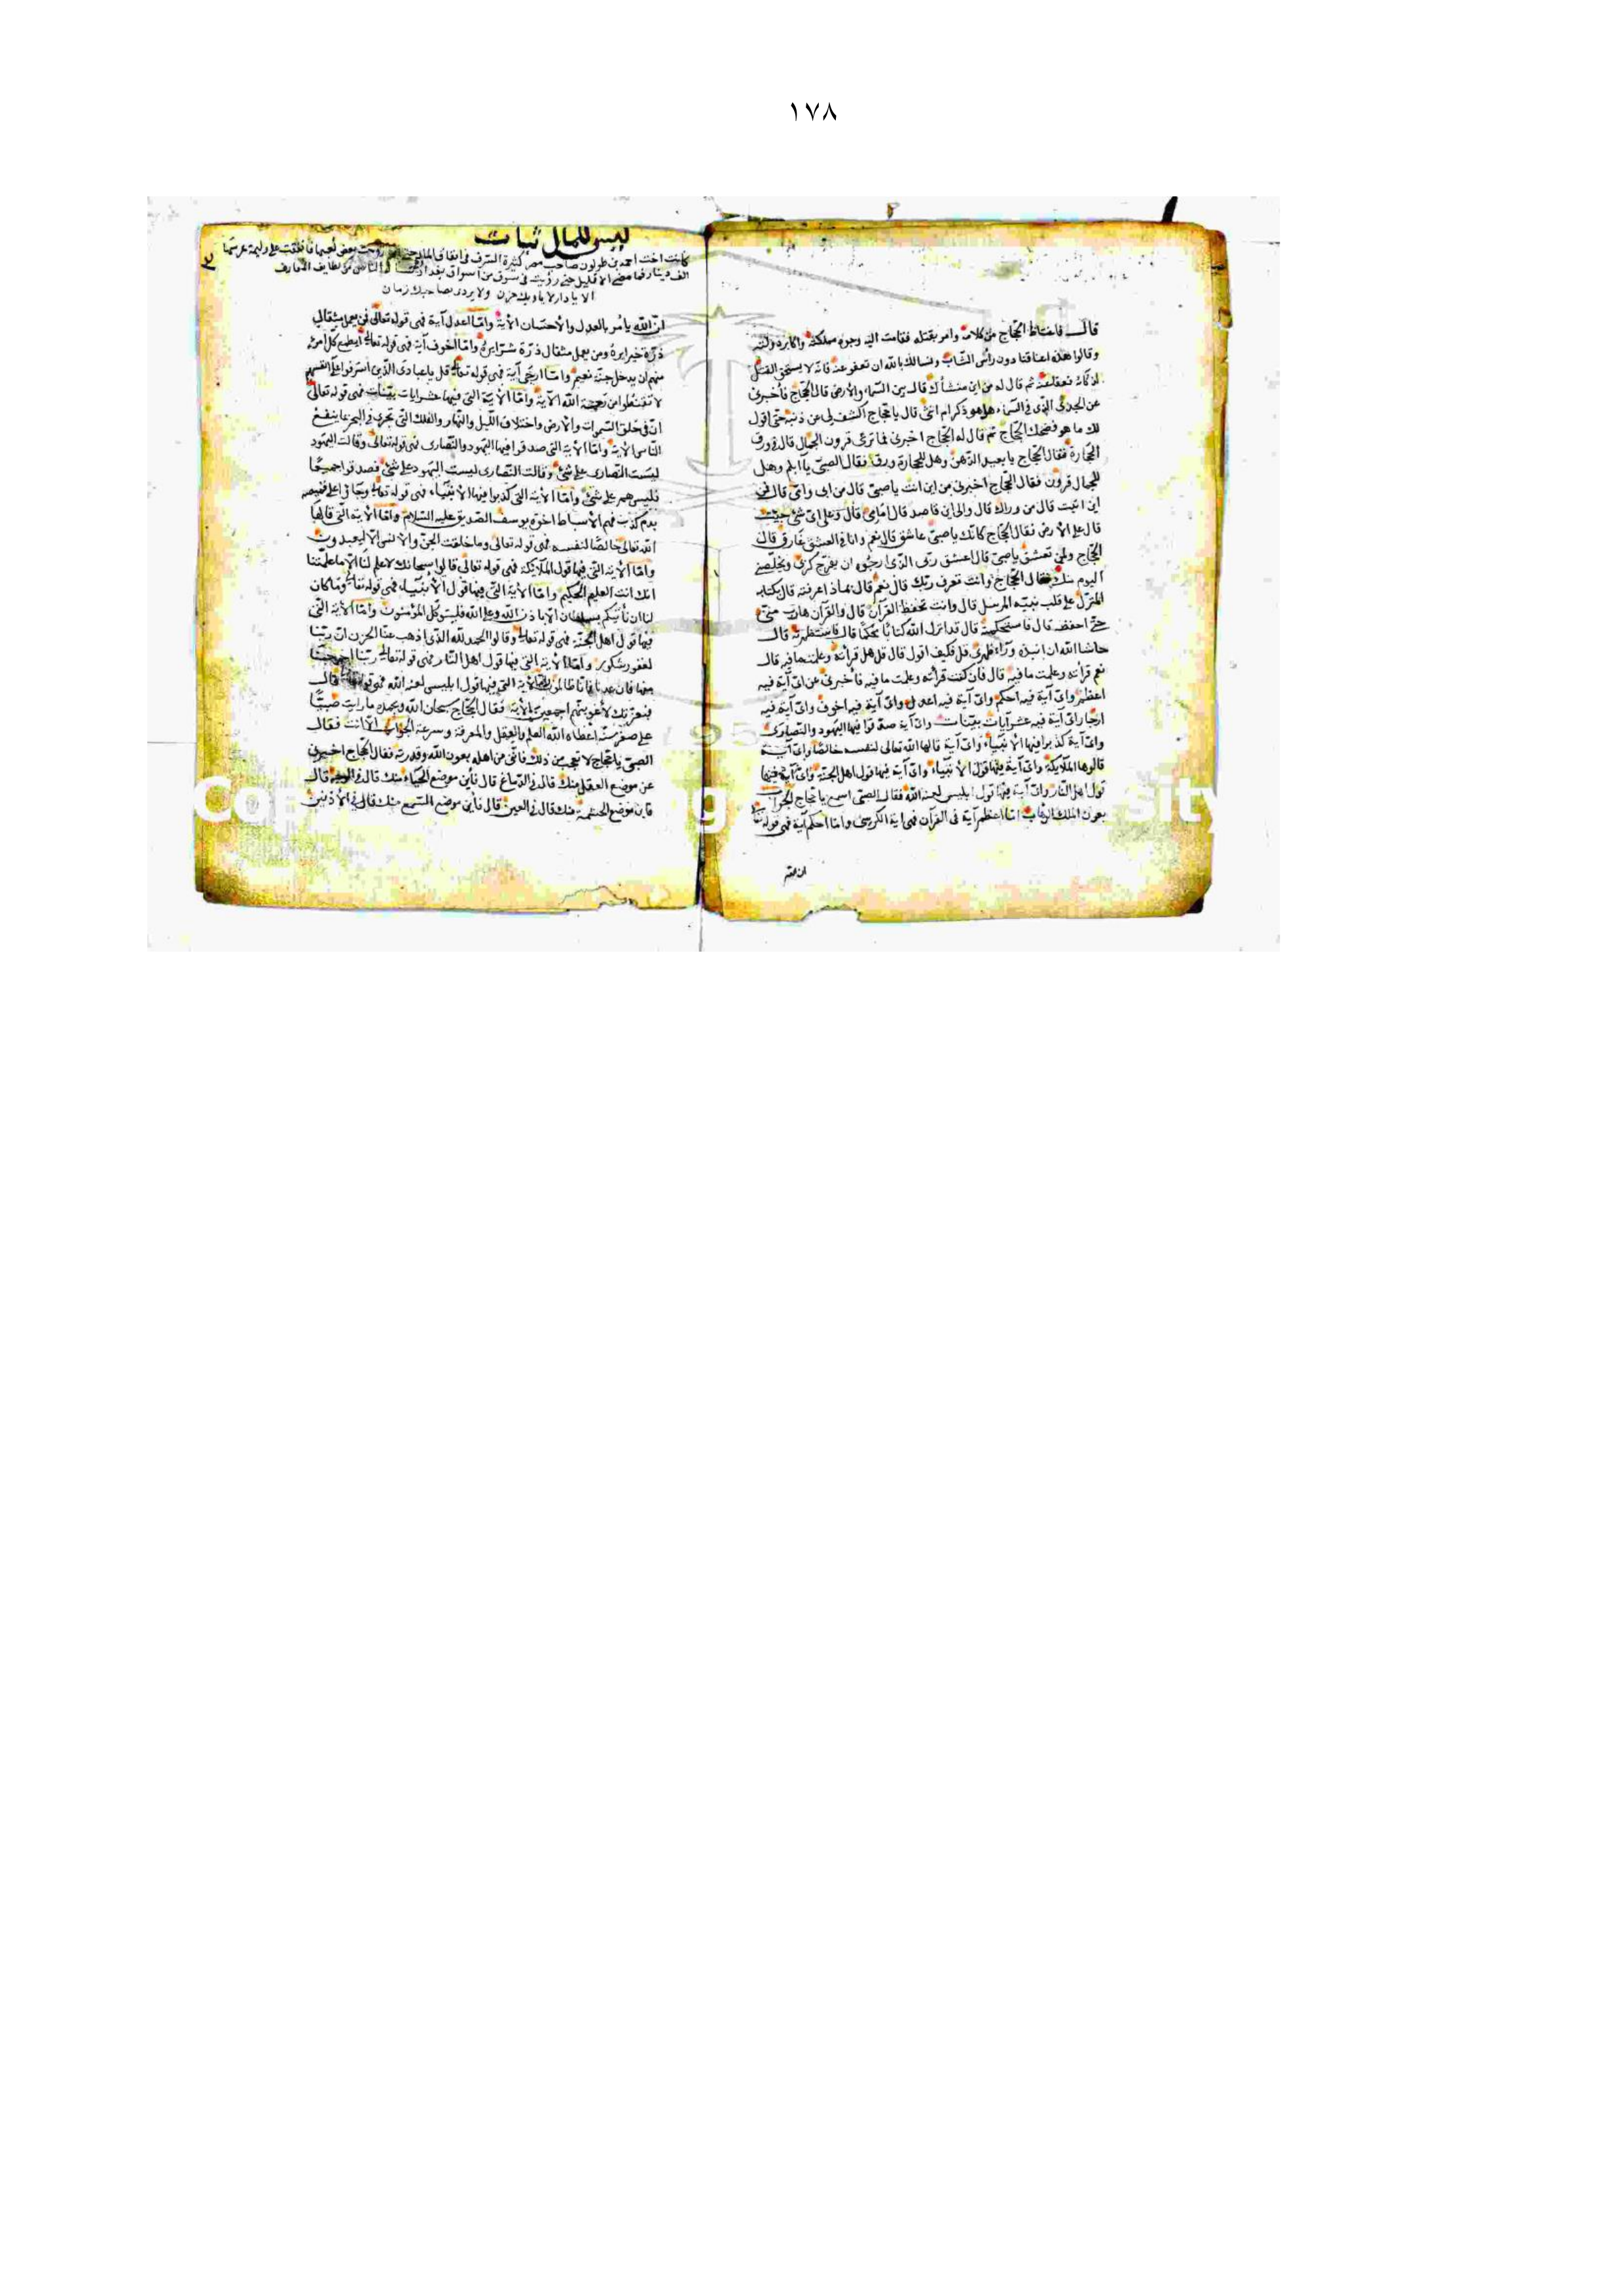 ١٧٨
قال فاغتاظ الحجاج من كلامه وامر بقتله فقامت اليه وجوه مملكته واكابر دولته
وقالوا هذه اعناقنا دون رأس الشاب ونسالك بالله ان تعفو عنه فانه لا يستحق القتل
فعفا عنه ثم قال له من اين منشأك قال بين السماء والارض قال الحجاج فأخبرني
عن الجدي الذي في السماء هو ذكر ام انثى قال يا حجاج اكشف لي عن ذنبه حتى اقول
لك ما هو فضحك الحجاج ثم قال له الحجاج اخبرني فما ترعى قرون الجمال قال ورق
الحجارة فقال الحجاج يا بعيد الذهن وهل للحجارة ورق فقال الصبي يا ابله وهل
للجمال قرون فقال الحجاج اخبرني من اين انت يا صبي قال من ابي وامي قال فمن
اين اتيت قال من وراك قال والى اين قاصد قال امامي قال وعلى اي شيء جيت
قال على الارض فقال الحجاج كانك يا صبي عاشق قال نعم وانا في العشق غارق قال
الحجاج ولمن تعشق يا صبي قال اعشق ربي الذي ارجوه ان يفرج كربي ويخلصني
اليوم منك فقال الحجاج وانت تعرف ربك قال نعم قال بماذا عرفته قال بكتابه
المنزل على قلب نبيه المرسل قال وانت تحفظ القرآن قال والقرآن هارب مني
حتى احفظه قال فاستحكمته قال قد انزل الله كتابا محكما قال فاستظهرته قال
حاشا الله ان انبذه وراء ظهري قل فكيف اقول قال قل هل قرأته وعلمت ما فيه قال
نعم قرأته وعلمت ما فيه قال فأن كنت قرأته وعلمت ما فيه فأخبرني عن اي آية فيه
اعظم واي آية فيه احكم واي آية فيه اعدل واي آية فيه اخوف واي آية فيه
ارجا واي آية فيه عشر آيات بينات واي آية صدقوا فيها اليهود والنصارى
واي آية كذبوا فيها الانبياء واي آية قالها الله تعالى لنفسه خالصا واي آية
قالوها الملايكة واي آية فيها قول الانبياء واي آية فيها قول اهل الجنة واي آية فيها
قول اهل النار واي آية فيها قول ابليس لعنه الله فقال الصبي اسمع يا حجاج الجواب
بعون الملك الوهاب اما اعظم آية في القرآن فهي آية الكرسي واما احكم آية فهي قوله
ان الله
ليس للمال ثبات
كانت اخت احمد بن طولون صاحب مصر كثيرة السرف في انفاق المال زوجت بعض لعبها فانفقت على وليمة عرسها
الف دينار فما مضى الا قليل حتى رؤيت في سوق من اسواق بغداد
الا يا دار لا يدخلك حزن ولا يردى بصاحبك زمان
ان الله يأمر بالعدل والاحسان الاية واما اعدل آية فهي قوله تعالى فمن يعمل مثقال
ذرة خيرا يره ومن يعمل مثقال ذرة شرا يره واما اخوف آية فهي قوله تعالى ايطمع كل امرئ
منهم ان يدخل جنة نعيم واما ارجى آية فهي قوله تعالى قل يا عبادي الذين اسرفوا على انفسهم
لا تقنطوا من رحمة الله الآية واما الآية التي فيها عشر ايات بينات فهي قوله تعالى
ان في خلق السموات والارض واختلاف الليل والنهار والفلك التي تجري في البحر بما ينفع
الناس الاية واما الاية التي صدقوا فيها اليهود والنصارى فهي قوله تعالى وقالت اليهود
ليست النصارى على شيء وقالت النصارى ليست اليهود على شيء فصدقوا جميعا
فليس هم على شيء واما الاية التي كذبوا فيها الانبياء فهي قوله تعالى وجاؤا على قميصه
بدم كذب فهم الاسباط اخوة يوسف الصديق عليه السلام واما الاية التي قالها
الله تعالى خالصا لنفسه فهي قوله تعالى وما خلقت الجن والانس الا ليعبدون
واما الاية التي فيها قول الملايكة فهي قوله تعالى قالوا سبحانك لا علم لنا الا ما علمتنا
انك انت العليم الحكيم واما الاية التي فيها قول الانبياء فهي قوله تعالى وما كان
لنا ان نأتيكم بسلطان الا باذن الله وعلى الله فليتوكل المؤمنون واما الاية التي
فيها قول اهل الجنة فهي قوله تعالى وقالوا الحمد لله الذي اذهب عنا الحزن ان ربنا
لغفور شكور واما الاية التي فيها قول اهل النار فهي قوله تعالى ربنا اخرجنا
منها فان عدنا فانا ظالمون واما الاية التي فيها قول ابليس لعنه الله فهي قوله قال
فبعزتك لاغوينهم اجمعين الاية فقال الحجاج سبحان الله وبحمده ما رايت صبيا
على صغر سنه اعطاه الله العلم والعقل والمعرفة وسرعة الجواب الا انت فقال
الصبي يا حجاج لا تعجب من ذلك فاني من اهله بعون الله وقدرته فقال الحجاج اخبرني
عن موضع العقل منك قال في الدماغ قال فأين موضع الحياء منك قال في الوجه قال
فاين موضع الحشمة منك قال في العين قال فأين موضع السمع منك قال في الاذنين